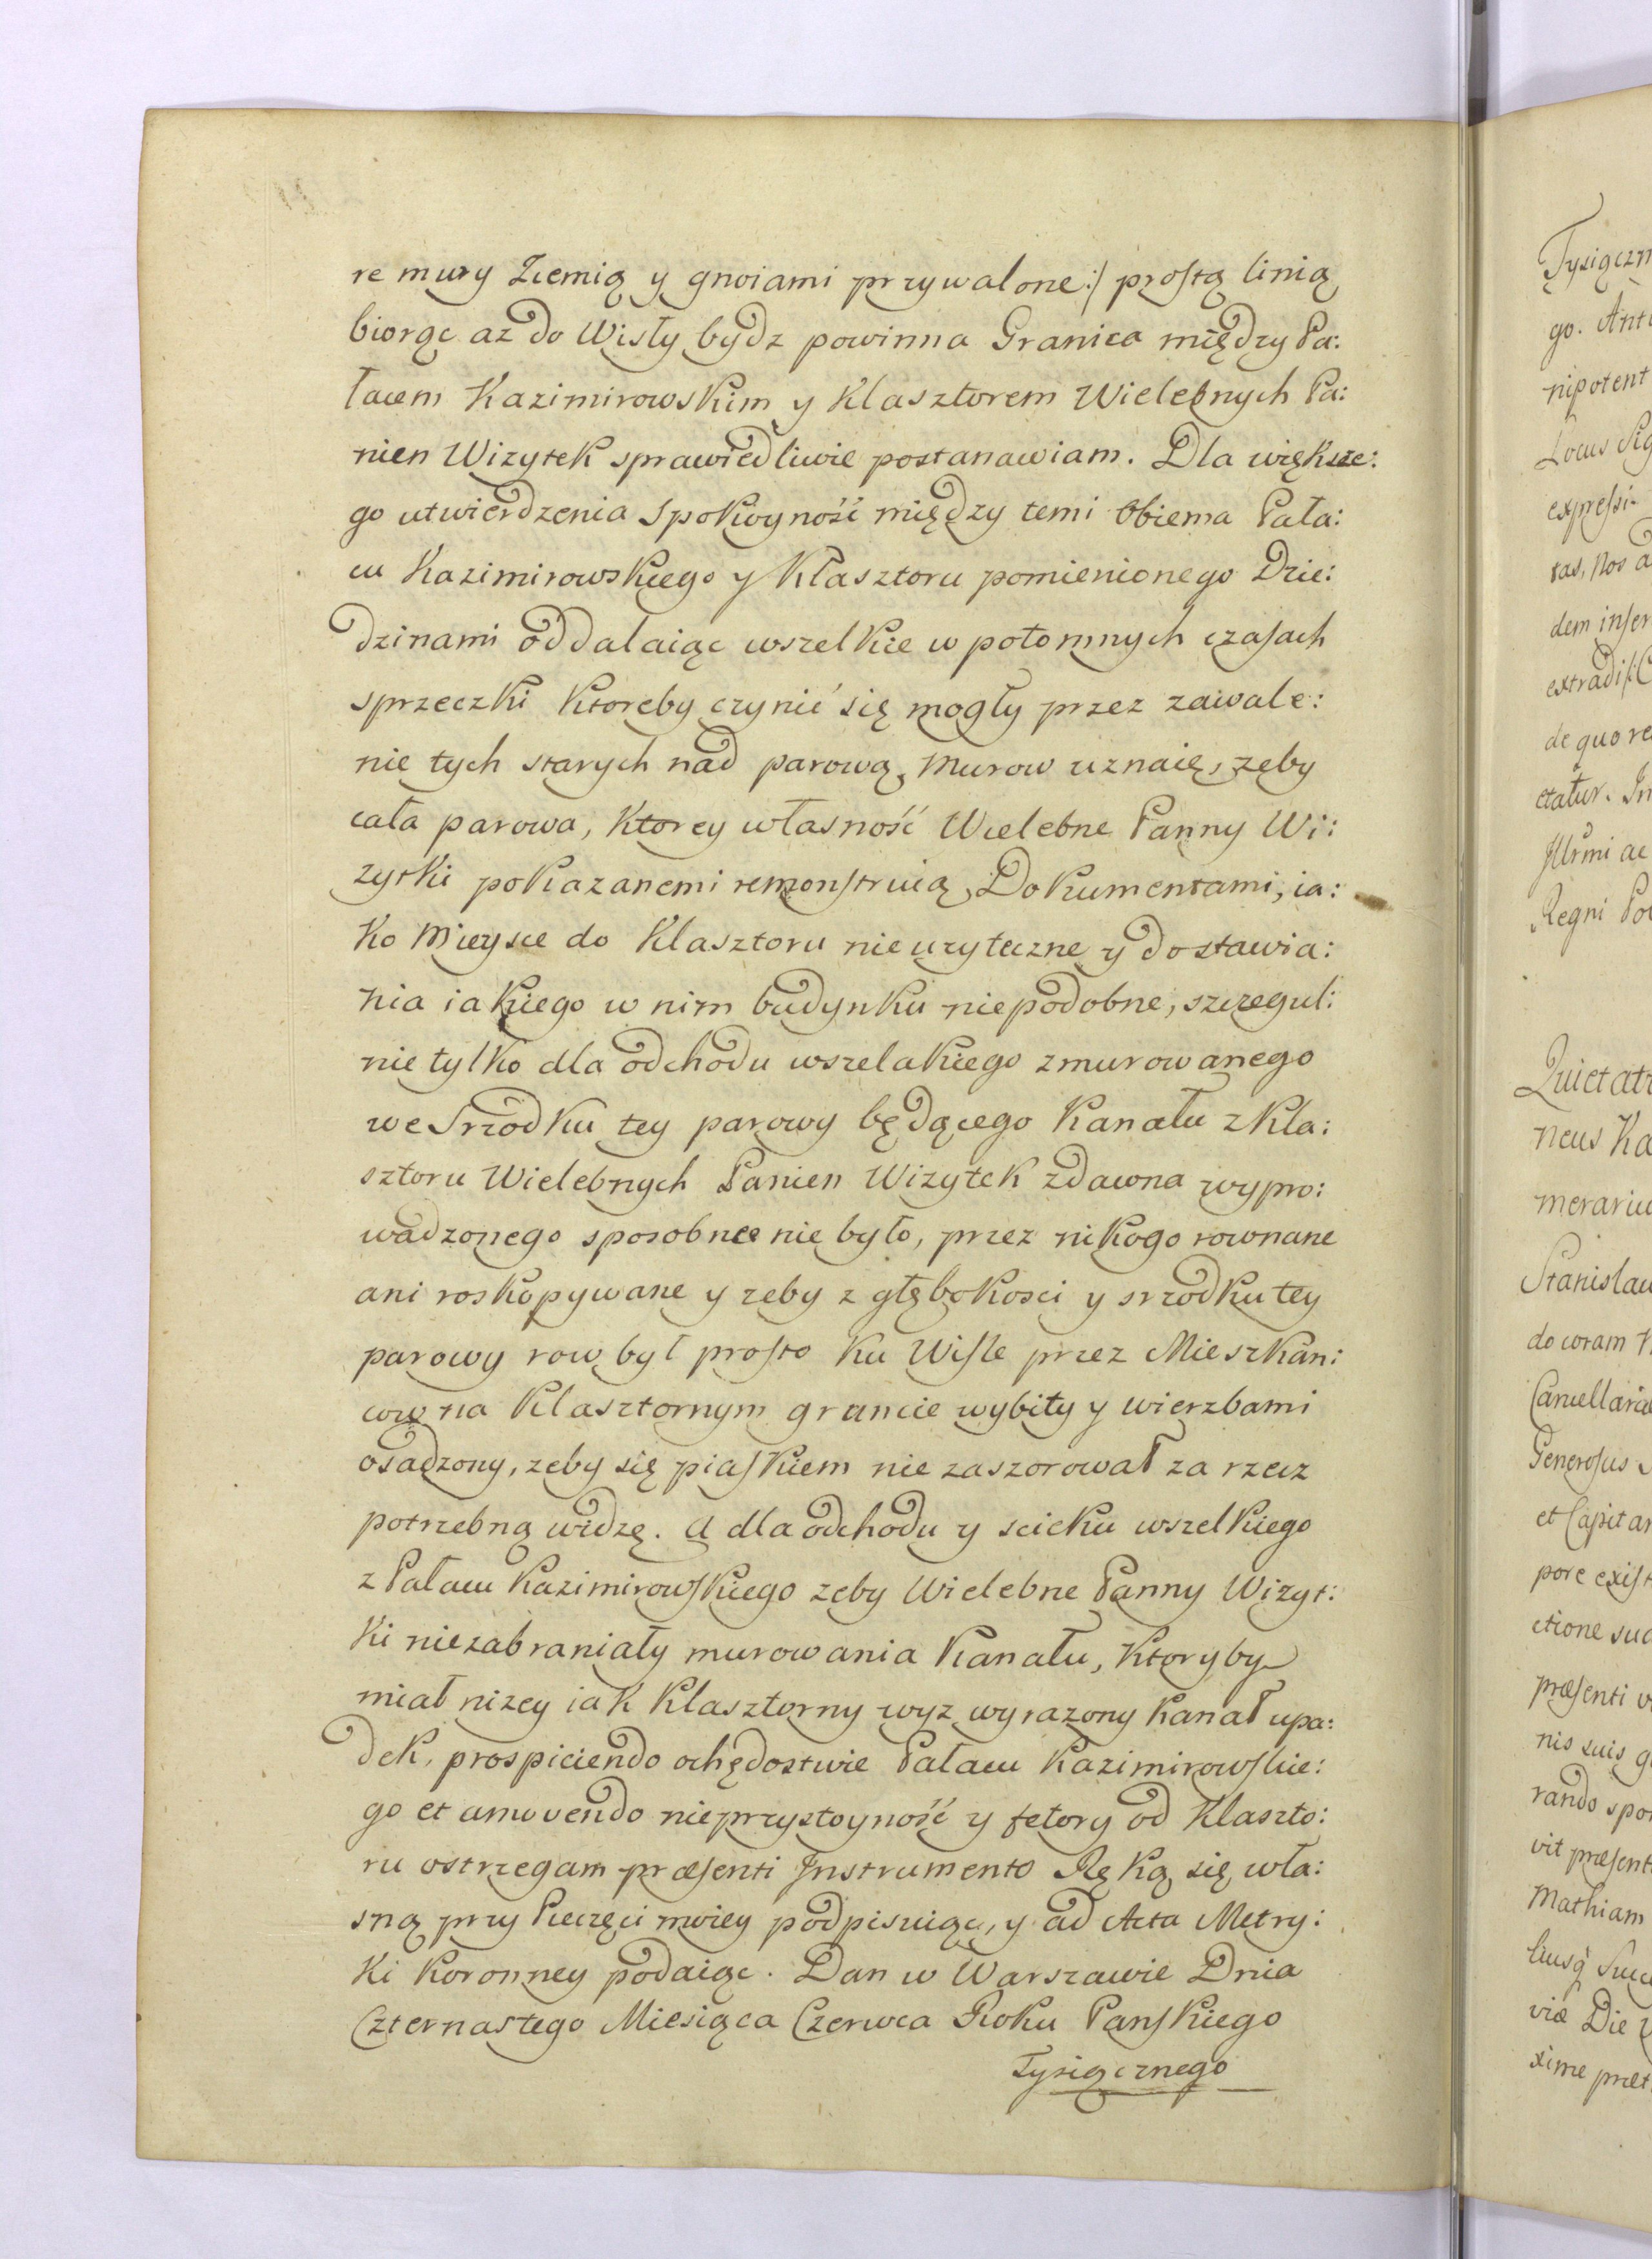 re mury Ziemią y gnoiami przywalone:/ prostą linią
biorąc az do Wisły bydz powinna Granica między Pa:
łacem Kazimirowskim y Klasztorem Wielebnych Pa:
nien Wizytek sprawiedliwie postanawiam. Dla większe:
go utwierdzenia Spokoyność między temi Obiema Pała:
cu Kazimirowskiego y Klasztoru pomienionego Dzie:
dzinami oddalaiąc wszelkie w potomnych czasach
sprzeczki Ktoreby czynić się mogły przez zawale:
nie tych starych nad parową, Murow uznaię, zeby
cała parowa, Ktorey własność Wielebne Panny Wi:
zytki pokazanemi remonstruią Dokumentami, ia:
ko Mieysce do Klasztoru nieuzyteczne y do stawia:
nia iakiego w nim budynku niepodobne, szczegul:
nie tylko dla odchodu wszelakiego zmurowanego
we Srzodku tey parowy będącego Kanału z Kla:
sztoru Wielebnych Panien Wizytek zdawna wypro:
wadzonego sposobnee nie było, przez nikogo rownane
ani roskopywane y zeby z głębokosci y srzodku tey
parowy row był prosto ku Wisle przez Mieszkan:
cow na Klasztornym gruncie wybity y wierzbami
osadzony, zeby się piaskiem nie zaszorował za rzecz
potrzebną widzę. A dla odchodu y scieku wszelkiego
z Pałacu Kazimirowskiego zeby Wielebne Panny Wizyt:
ki niezabraniały murowania Kanału, Ktoryby
miał nizey iak Klasztorny wyz wyrazony Kanał upa:
dek, prospiciendo ochędostwie Pałacu Kazimirowskie:
go et amovendo nieprzystoyność y fetory od Klaszto:
ru ostrzegam præsenti Instrumento Ręką się wła:
sną przy Pieczęci moiey podpisuiąc, y ad Acta Metry:
ki Koronney podaiąc. Dan w Warszawie Dnia
Czternastego Miesiąca Czerwca Roku Panskiego
Tysiącznego
go.
nipotent
Locus Sig
expressi
tas, Nos
dem inser
extradi
de quo re
ctatur. In
Illrmi ac
Regni Po
Quietat
neus Ka
merariu
Stanislau
do coram
Cancellaria
Generosus
et Capitan
pore exist
ctione sua
præsenti
nis suis
rando spo
vit præsent
Mathiam
viæ Die
xime præt